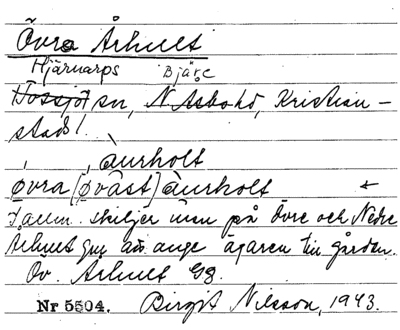 Övra Århult
Hjärnarps Bjäre
Tossjö sn, N. Åsbo hd, Kristian-
stads l.
àurholt
øvra [øvast] àurholt ←
I allm. skiljer man på Övre och Nedre
Århult gm att ange ägaren till gården.
Öv. Århult Gg.
Nr 5504. Birgit Nilsson, 1943.